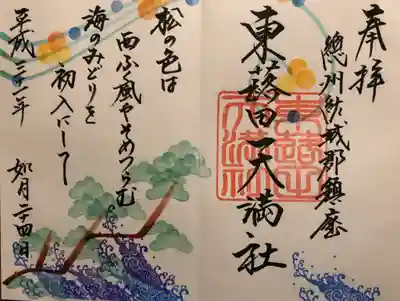 奉拝
總州結城郡鎮座
東蕗田天満社
松の色は
西ふく風やそめつらむ
海のみどりを
初入にして
平成三十一年
如月二十四日